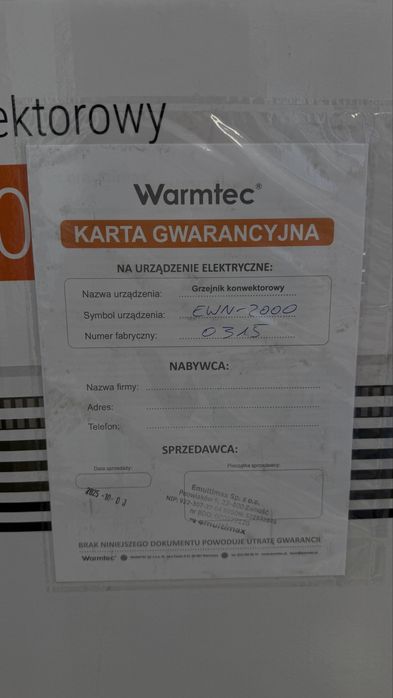 ektorowy
0
Warmtec®
KARTA GWARANCYJNA
NA URZĄDZENIE ELEKTRYCZNE:
Nazwa urządzenia: Grzejnik konwektorowy
Symbol urządzenia: EWN-2000
Numer fabryczny: 0315
NABYWCA:
Nazwa firmy:
Adres:
Telefon:
SPRZEDAWCA:
Data sprzedaży: Pieczątka sprzedawcy:
2025 -10- 03
Emultimax Sp. z o.o.
22-400 Zamość
emultimax
BRAK NINIEJSZEGO DOKUMENTU POWODUJE UTRATĘ GWARANCJI
Warmtec®